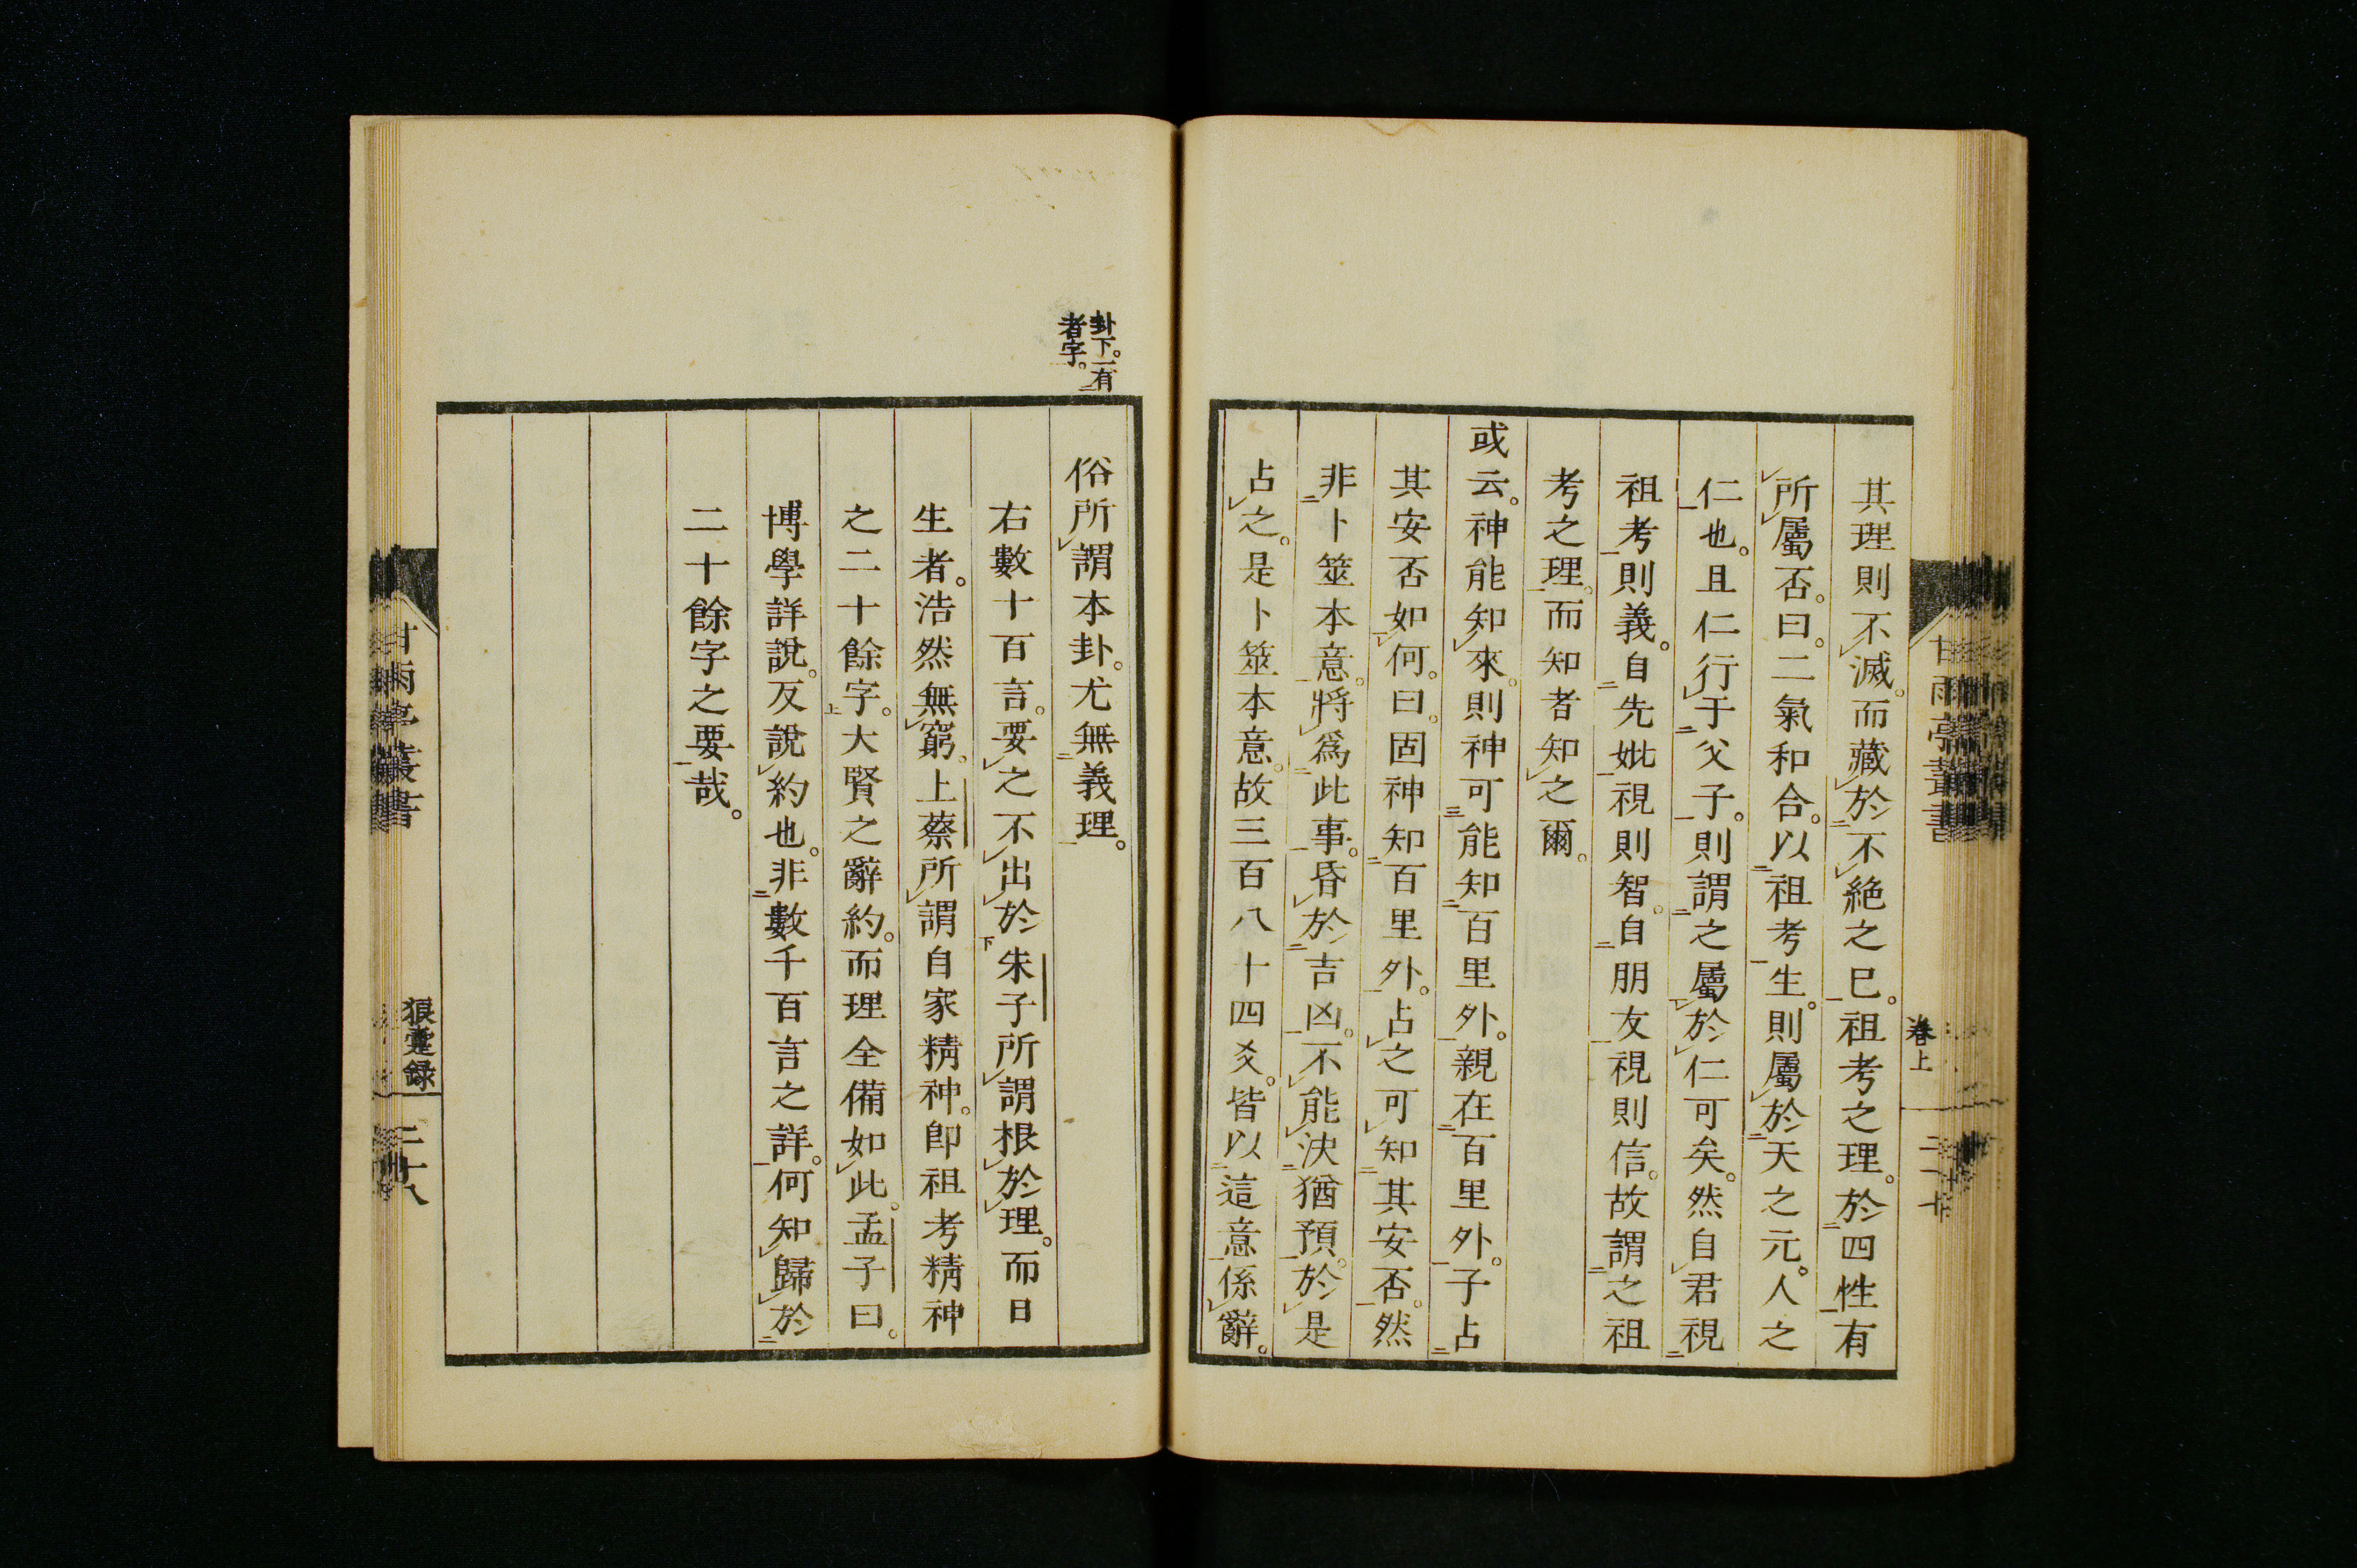 其理則不滅。而藏於不絶之巳。祖考之理。於四性有
所屬否。曰。二氣和合。以祖考生。則屬於天之元。人之
仁也。且仁行于父子。則謂之屬於仁可矣。然自君視
祖考則義。自先妣視則智。自朋友視則信。故謂之祖
考之理。而知者知之爾。
或云。神能知來。則神可能知百里外。親在百里外。子占
其安否如何。曰。固神知百里外。占之可知其安否。然
非卜筮本意。將爲此事。昏於吉凶。不能決猶預。於是
占之。是卜筮本意。故三百八十四爻。皆以這意係辭。
卷上
卦下。一有
者字。
俗所謂本卦。尤無義理。
右數十百言。要之不出於朱子所謂根於理。而日
生者。浩然無窮。上蔡所謂自家精神。卽祖考精神
之二十餘字。大賢之辭約。而理全備如此。孟子曰。
博學詳說。反說約也。非數千百言之詳。何知歸於
二十餘字之要哉。
甘雨亭叢書
狼疐録
二十八